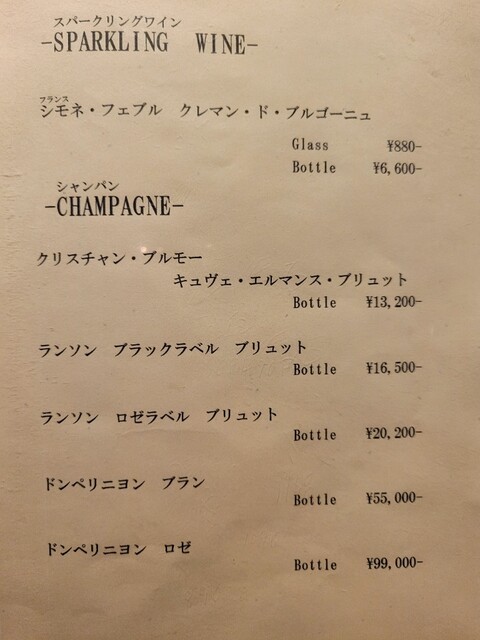 スパークリングワイン
-SPARKLING WINE-
フランス
シモネ・フェブル クレマン・ド・ブルゴーニュ
Glass ¥880-
Bottle ¥6,600-
シャンパン
-CHAMPAGNE-
クリスチャン・ブルモー
キュヴェ・エルマンス・ブリュット
Bottle ¥13,200-
ランソン ブラックラベル ブリュット
Bottle ¥16,500-
ランソン ロゼラベル ブリュット
Bottle ¥20,200-
ドンペリニヨン ブラン
Bottle ¥55,000-
ドンペリニヨン ロゼ
Bottle ¥99,000-